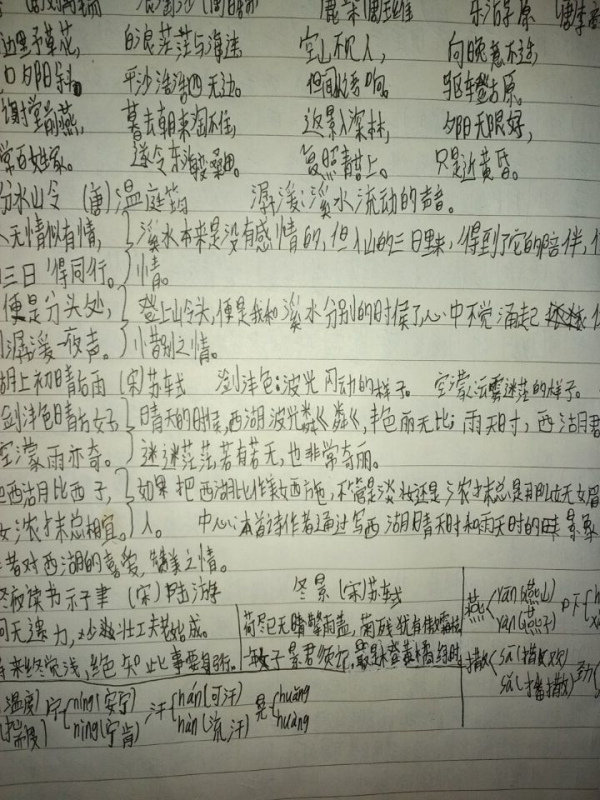 鹿柴(唐)王维 乐游原(唐)李商
边野草花, 白浪茫茫与海连 空山不见人, 向晚意不适,
口夕阳斜。 平沙浩浩四无边。 但闻人语响。 驱车登古原。
谢堂前燕, 暮去朝来淘不住, 返景入深林, 夕阳无限好,
常百姓家。 遂令东海变桑田。 复照青苔上。 只是近黄昏。
分水岭 (唐)温庭筠 潺湲:溪水流动的声音。
无情似有情, 溪水本来是没有感情的,但入山的三日里来,得到了它的陪伴,
三日得同行。 情。
便是分头处, 登上山岭头,便是我和溪水分别的时候了,心中不觉涌起
潺湲一夜声。 惜别之情。
湖上初晴后雨 (宋)苏轼 潋滟色:波光闪动的样子。 空濛:云雾迷茫的样子。
潋滟色晴方好 晴天的时候,西湖波光粼粼,丰色丽无比;雨天时,西湖君
空濛雨亦奇。 迷迷茫茫若有若无,也非常奇丽。
西湖比西子, 如果把西湖比作美女西施,不管是淡妆还是浓抹总是那
浓抹总相宜。 人。 中心:本首诗作者通过写西湖晴天时和雨天时的 景
着对西湖的喜爱,赞美之情。
夜读书示子聿 (宋)陆游 冬景(宋)苏轼 燕 yān(燕山)
问无遗力,少壮工夫老始成。 荷尽已无擎雨盖,菊残犹有傲霜枝 yàn(燕子)
来终觉浅,绝知此事要躬行。 一年好景君须记,最是橙黄橘绿时 撒 sā(撒欢) 劲
sǎ(播撒)
温度) 宁 níng(安宁) 汗 hán(可汗) 晃 huǎng
nìng(宁肯) hàn(流汗) huàng